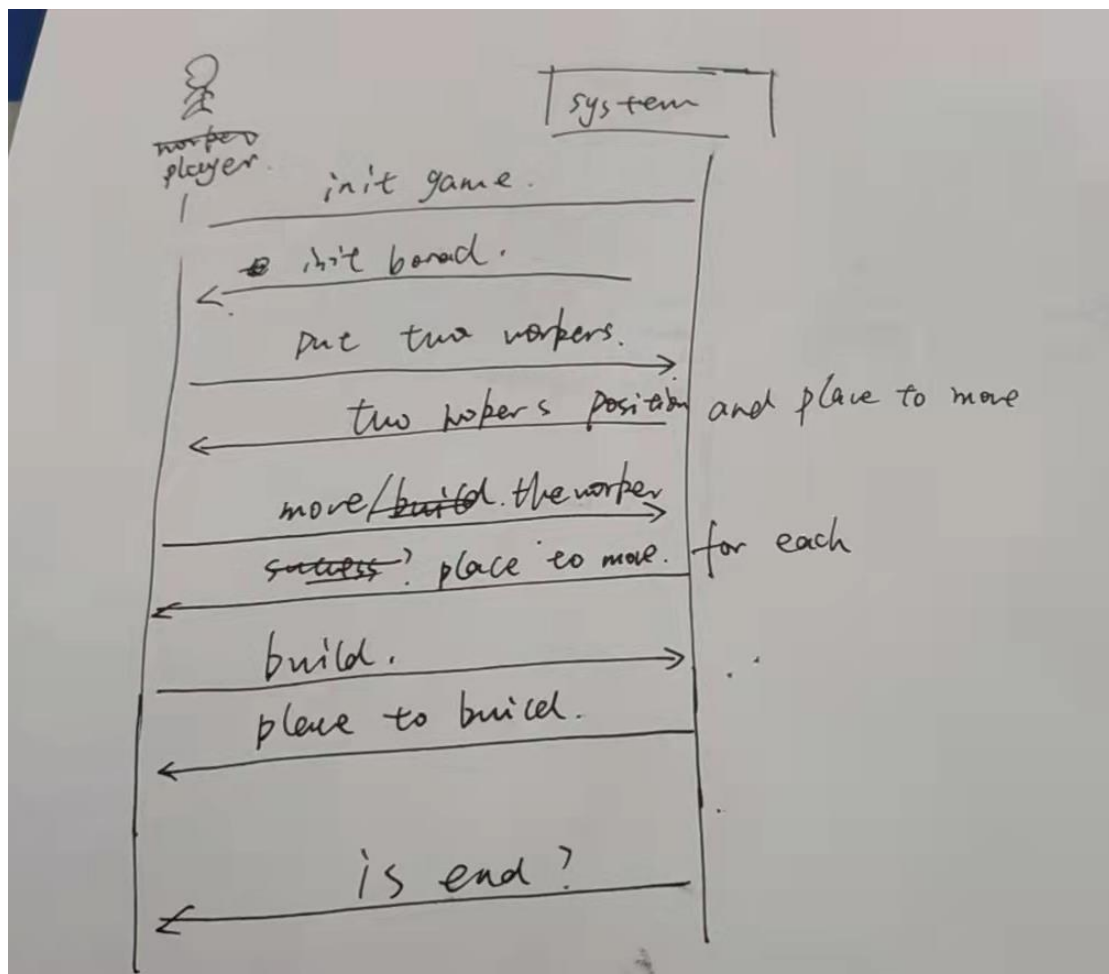 system
worker
player.
init game.
init borad.
put two workers.
two wokers position and place to move
move/build. the worker
success? place to move. for each
build.
place to build.
is end?